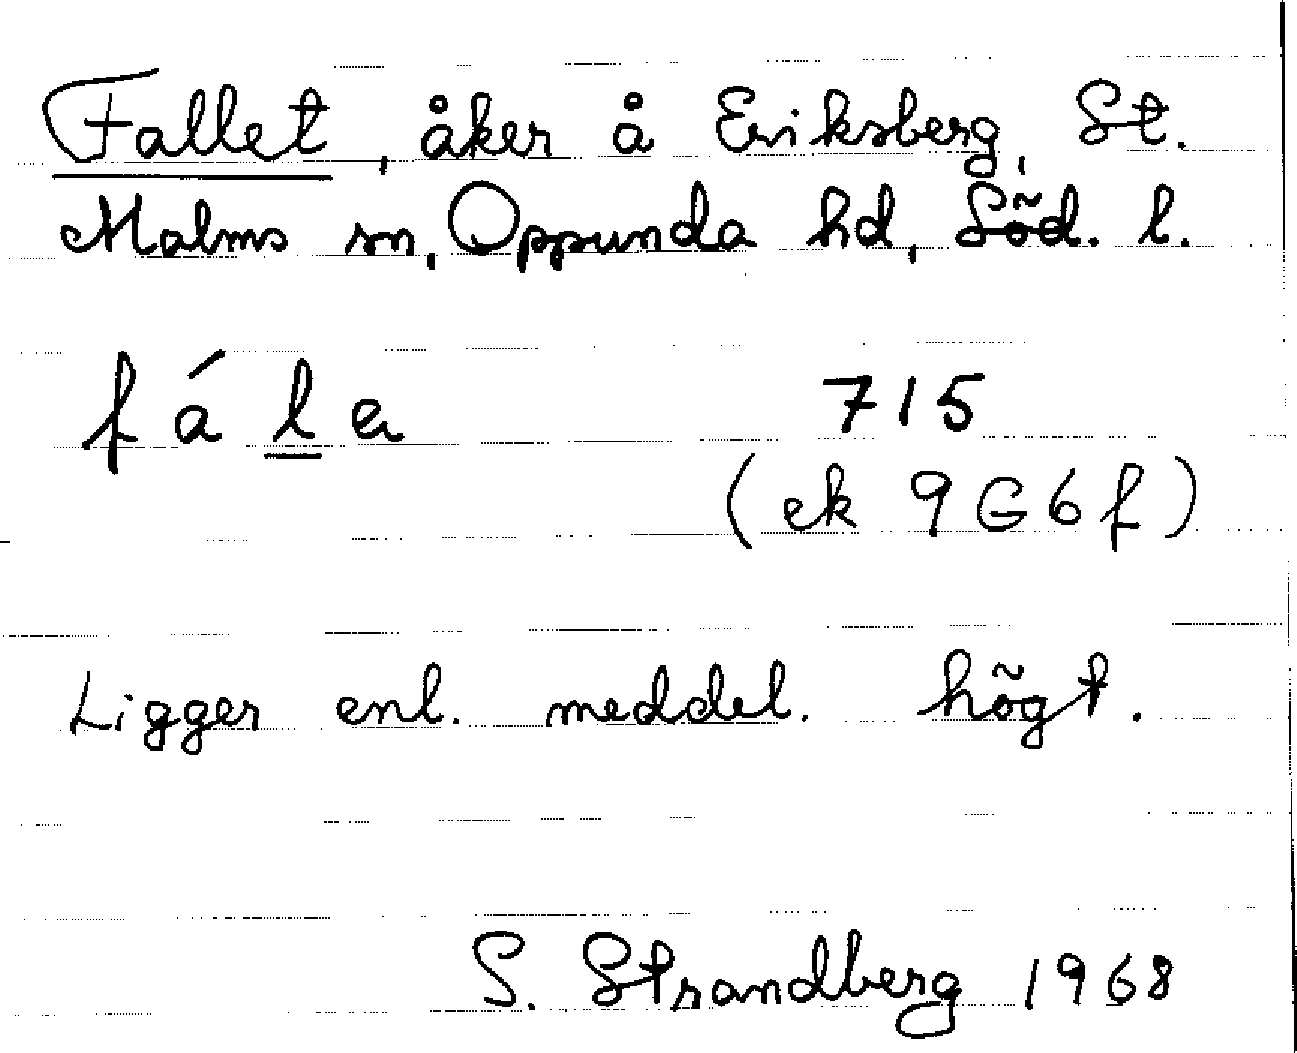 Fallet, åker å Eriksberg, St.
Malms sn, Oppunda hd, Söd. l.
fála 715
(ek 9G6f)
Ligger enl. meddel. högt.
S. Strandberg 1968